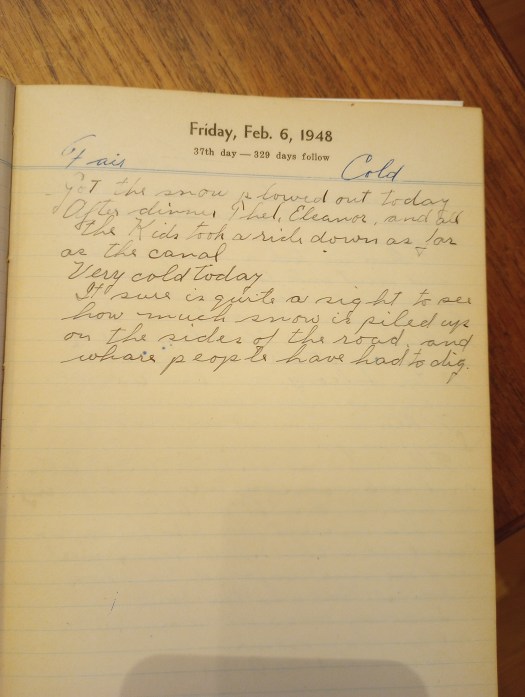 Friday, Feb. 6, 1948
37th day — 329 days follow
Fair Cold
Got the snow plowed out today
After dinner, Eleanor, and all
the Kids took a ride down as far
as the canal
Very cold today
It sure is quite a sight to see
how much snow is piled up
on the sides of the road, and
whare people have had to dig.